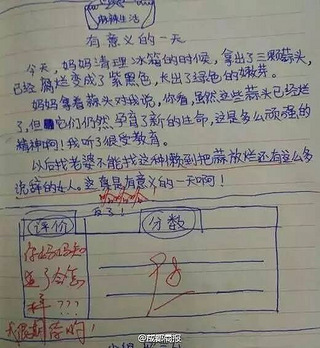 麻辣生活
有意义的一天
今天,妈妈清理冰箱的时候,拿出了三颗蒜头,
已经腐烂变成了紫黑色,长出了绿色的嫩芽。
妈妈拿着蒜头对我说,你看,虽然这些蒜头已经烂
了,但它们仍然孕育了新的生命,这是多么顽强的
精神啊!我听了很受教育。
以后找老婆不能找这种懒到把蒜放烂还有这么多
说辞的女人。这真是有意义的一天啊!
哈哈哈
评价
分数
你妈妈知
道了会怎
样???
@成都商报